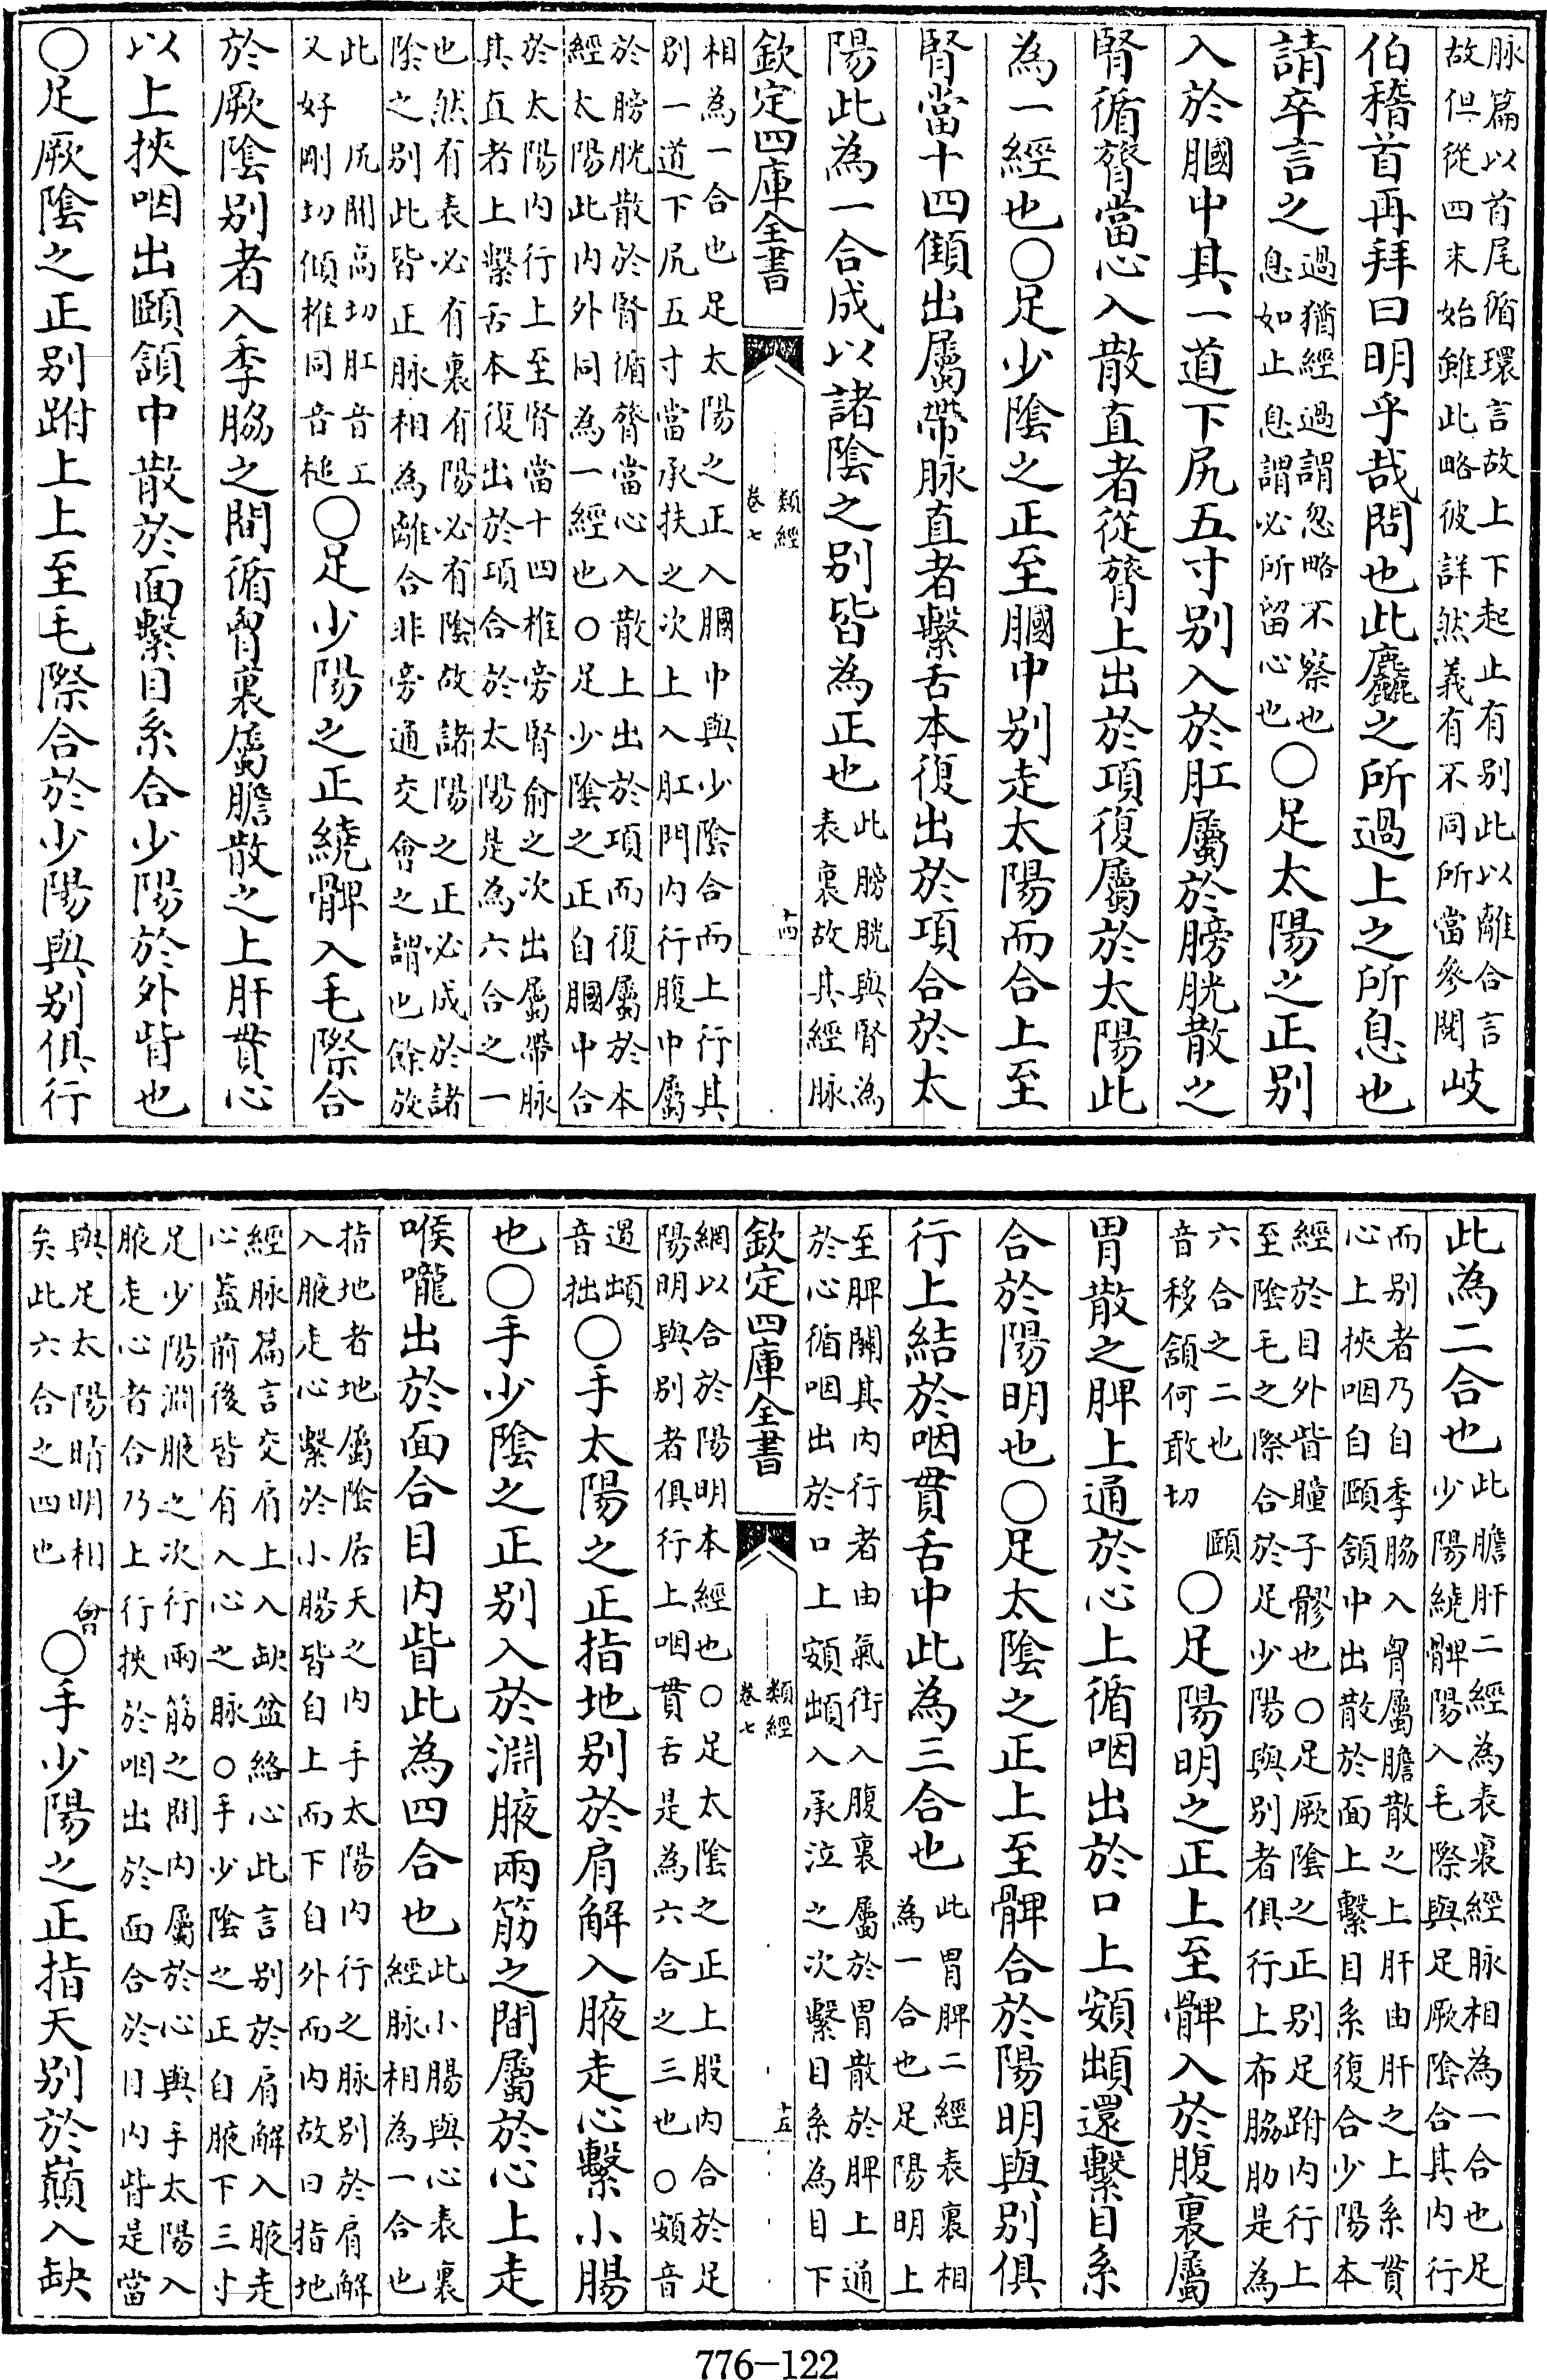 脉篇以首尾循環言故上下起止有别此以離合言
故但從四末始雖此略彼詳然義有不同所當參閱
岐
伯稽首再拜曰明乎哉問也此麤之所過上之所息也
請卒言之
過猶經過謂忽略不察也
息如止息謂必所留心也
〇足太陽之正别
入於膕中其一道下尻五寸别入於肛屬於膀胱散之
腎循膂當心入散直者從膂上出於項復屬於太陽此
為一經也〇足少陰之正至膕中别走太陽而合上至
腎當十四顀出屬帶脉直者繫舌本復出於項合於太
陽此為一合成以諸陰之别皆為正也
此膀胱與腎為
表裏故其經脉
欽定四庫全書
類經
卷七
十四
相為一合也足太陽之正入膕中與少陰合而上行其
别一道下尻五寸當承扶之次上入肛門内行腹中屬
於膀胱散於腎循膂當心入散上出於項而復屬於本
經太陽此内外同為一經也〇足少陰之正自膕中合
於太陽内行上至腎當十四椎旁腎俞之次出屬帶脉
其直者上繫舌本復出於項合於太陽是為六合之一
也然有表必有裏有陽必有陰故諸陽之正必成於諸
陰之别此皆正脉相為離合非旁通交會之謂也餘放
此 尻開高切肛音工
又好剛切傾椎同音槌
〇足少陽之正繞髀入毛際合
於厥陰别者入季脇之間循胷裏屬膽散之上肝貫心
以上挾咽出頤頷中散於面繫目系合少陽於外眥也
〇足厥陰之正别跗上上至毛際合於少陽與别俱行
此為二合也
此膽肝二經為表裏經脉相為一合也足
少陽繞髀陽入毛際與足厥陰合其内行
而别者乃自季脇入胷屬膽散之上肝由肝之上系貫
心上挾咽自頤頷中出散於面上繫目系復合少陽本
經於目外眥瞳子髎也〇足厥陰之正别足跗内行上
至陰毛之際合於足少陽與别者俱行上布脇肋是為
六合之二也 頤
音移頷何敢切
〇足陽明之正上至髀入於腹裏屬
胃散之脾上通於心上循咽出於口上頞䪼還繫目系
合於陽明也〇足太陰之正上至髀合於陽明與别俱
行上結於咽貫舌中此為三合也
此胃脾二經表裏相
為一合也足陽明上
至脾關其内行者由氣街入腹裏屬於胃散於脾上通
於心循咽出於口上頞䪼入承泣之次繫目系為目下
欽定四庫全書
類經
卷七
十五
網以合於陽明本經也〇足太陰之正上股内合於足
陽明與别者俱行上咽貫舌是為六合之三也〇頞音
遏䪼
音拙
〇手太陽之正指地别於肩解入腋走心繫小腸
也〇手少陰之正别入於淵腋兩筋之間屬於心上走
喉嚨出於面合目内眥此為四合也
此小腸與心表裏
經脉相為一合也
指地者地屬陰居天之内手太陽内行之脉别於肩解
入腋走心繫於小腸皆自上而下自外而内故曰指地
經脉篇言交肩上入缺盆絡心此言别於肩解入腋走
心蓋前後皆有入心之脉〇手少陰之正自腋下三寸
足少陽淵腋之次行兩筋之間内屬於心與手太陽入
腋走心者合乃上行挾於咽出於面合於目内眥是當
與足太陽睛明相會
矣此六合之四也
〇手少陽之正指天别於巔入缺
776-122